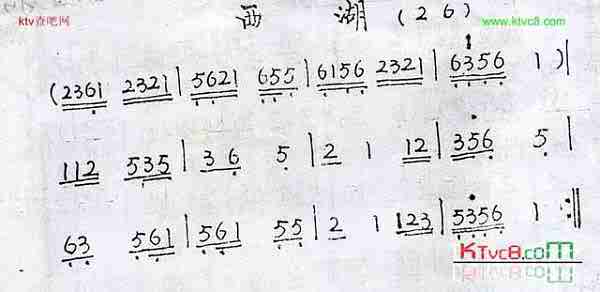 ktv查吧网
西 湖 (26)
www.ktvc8.com
(2361 2321 | 5621 655 | 6156 2321 | 6356 1 )|
112 535 | 36 5 | 2 1 12 | 356 5 |
63 561 | 561 55 | 2 1 123 | 5356 1 :||
KTvc8.com